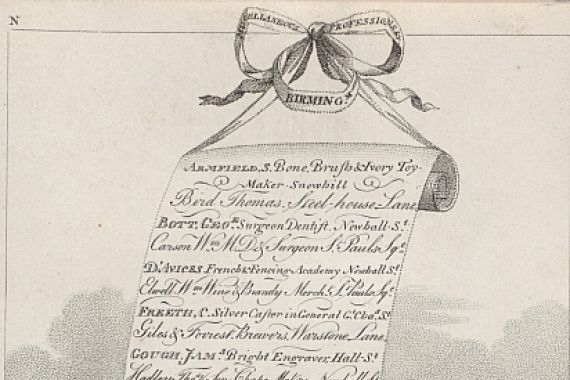 N
MISCELLANEOUS PROFESSIONS
BIRMING.ᵐ
ARMFIELD, S. Bone, Brush & Ivory Toy-
Maker Snowhill
Bird Thomas, Steel-house-Lane,
BOTT, GEO.ᴿ Surgeon Dentist, Newhall-S.ᵗ
Carson Wᵐ M.D. & Surgeon S.ᵗ Pauls Sq.ᵉ
D'AVICES French & Fencing Academy Newhall S.ᵗ
Elwell, Wᵐ Wine & Brandy Merch.ᵗ S.ᵗ Pauls Sq.ᵉ
FREETH, C. Silver Caster in General G.ᵗ Cha.ˢ S.ᵗ
Giles & Forrest, Brewers, Warstone Lane,
GOUGH, JAM.ˢ Bright Engraver, Hall-S.ᵗ
Hadley Tho.ˢ